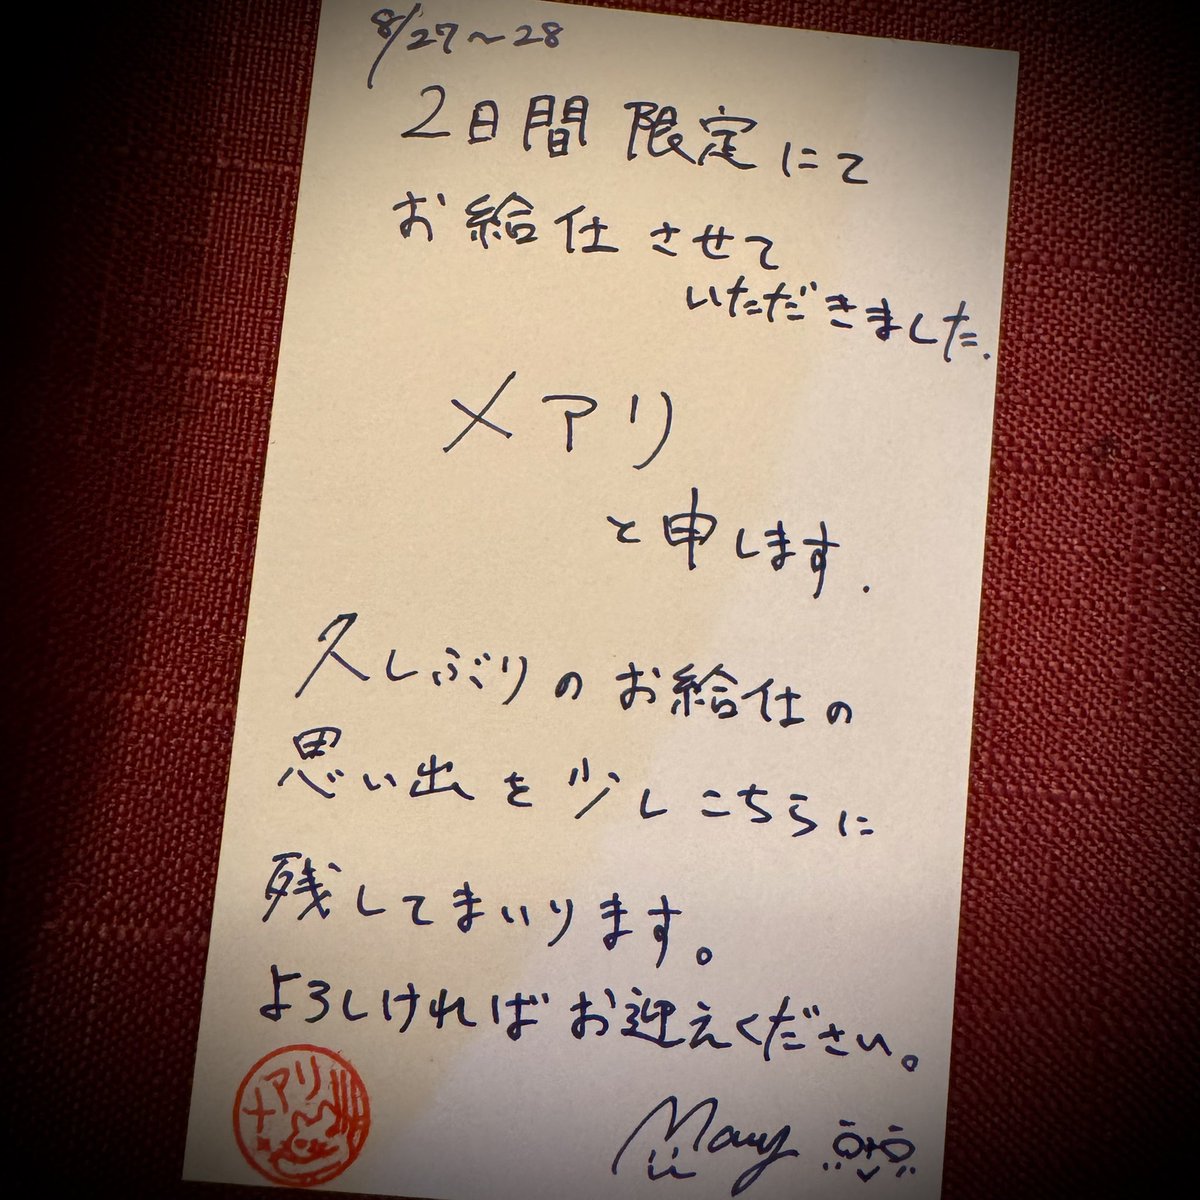 8/27〜28
2日間限定にて
お給仕させて
いただきました.
メアリ
と申します.
久しぶりのお給仕の
思い出を少しこちらに
残してまいります。
よろしければお迎えください。
メアリ
Mary